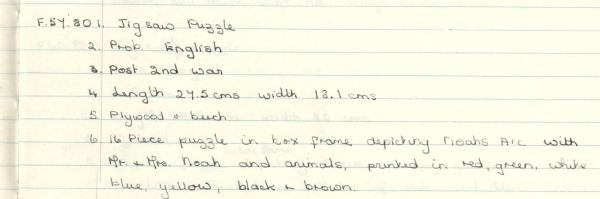 F.SY.801. Jigsaw Puzzle
2. Prob. English
3. Post 2nd war
4 Length 27.5cms width 18.1cms
5 Plywood & beech.
6 16 Piece puzzle in box frame depicting Noahs Arc with
Mr. & Mrs. Noah and animals, printed in red, green, white
blue, yellow, black & brown.